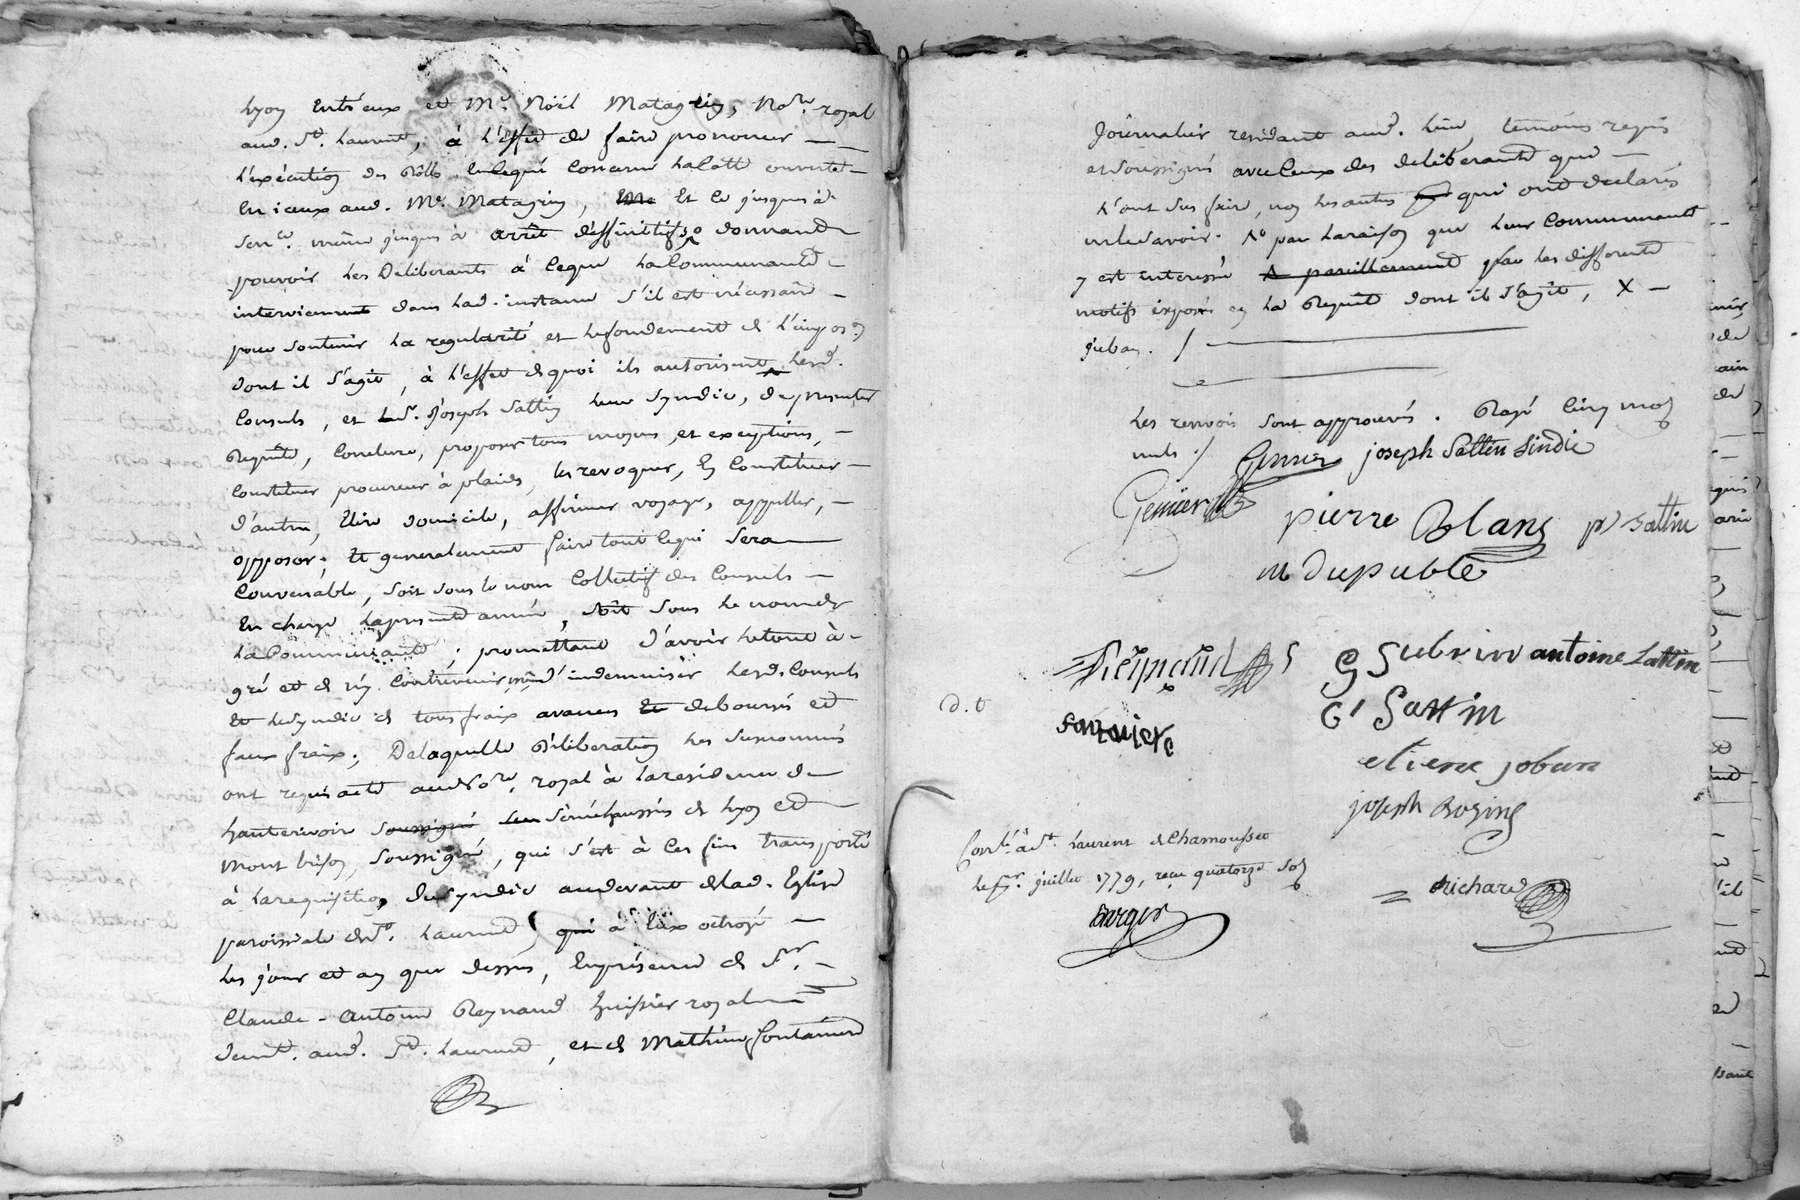 Lyon Entr'eux et Me. Noël Matagrin, Nore. royal
aud. St. Laurent, à L'effet de faire prononcer —
L'exécution des Rôlles Encequi Concerne La Cotte ouverte —
En iceux aud. Me. Matagrin, Et Ce jusques à
Sence. même jusques à arrêt deffinitif, donnant
pouvoir Les Deliberants à Ceque La Communauté —
intervienent dans Lad. instance S'il est nécessaire —
pour Soutenir La regularité et Lefondement de L'imposon.
dont il S'agit, à L'effet dequoi ils autorisent Lesd.
Consuls, et Led. Sr. Joseph Sattin Leur Syndic, de presenter
Requête, Conclure, proposer tous moyens, et exceptions, —
Constituer procureur à plaids, Les revoquer, En Constituer —
d'autres, Elire domicile, affirmer voyage, appeller, —
opposer; Et generalement faire tout Cequi Sera
Convenable, Soit Sous Le nom Collectif des Consuls —
En charge Lapresente année, Soit Sous Le nom de
La Communauté; promettant d'avoir Letout à —
gré et de n'y Contrevenir, même d'indemniser Lesd. Consuls
Et Lesyndic de tous fraix avances Et deboursés et
faux fraix; Delaquelle Déliberation Les Susnommés
ont requis acte aud Nore. royal à Laresidence de
hauterivoire Soussigné Sénéchaussées de Lyon et
Montbrison, Soussigné, qui S'est à Ces fins transporté
à Larequisition duSyndic audevant delad. Eglise
paroissiale de St. Laurent, qui à Eux octroyé —
Les jour et an que dessus, Enpresence de Sr. —
Claude-Antoine Reynaud huissier royal
demt. aud. St. Laurent, et de Mathieu fontanierd
Journalier residant aud. Lieu, temoins requis
et Soussignés avec Ceux des deliberants qui —
L'ont Sus faire, non Les autres qui ont declarés
nele Savoir. par Laraison que Leur Communauté
y est interessée pareillement par Les differents
motifs exposés en La Requête dont il S'agit, X —
Les renvois Sont approuvés. Rayé Cinq mots
nuls ./ Genier joseph Sattin Sindic
Genier
pierre Blanc pr Sattin
m Dupuble
Reynaud G Subrin antoine Sattin
d. t C Sattin
etiene jobun
joseph Rozing
Conlé. à St. Laurent de Chamousset
Le juillet 1779, reçu quatorze Sols
Berger Richard